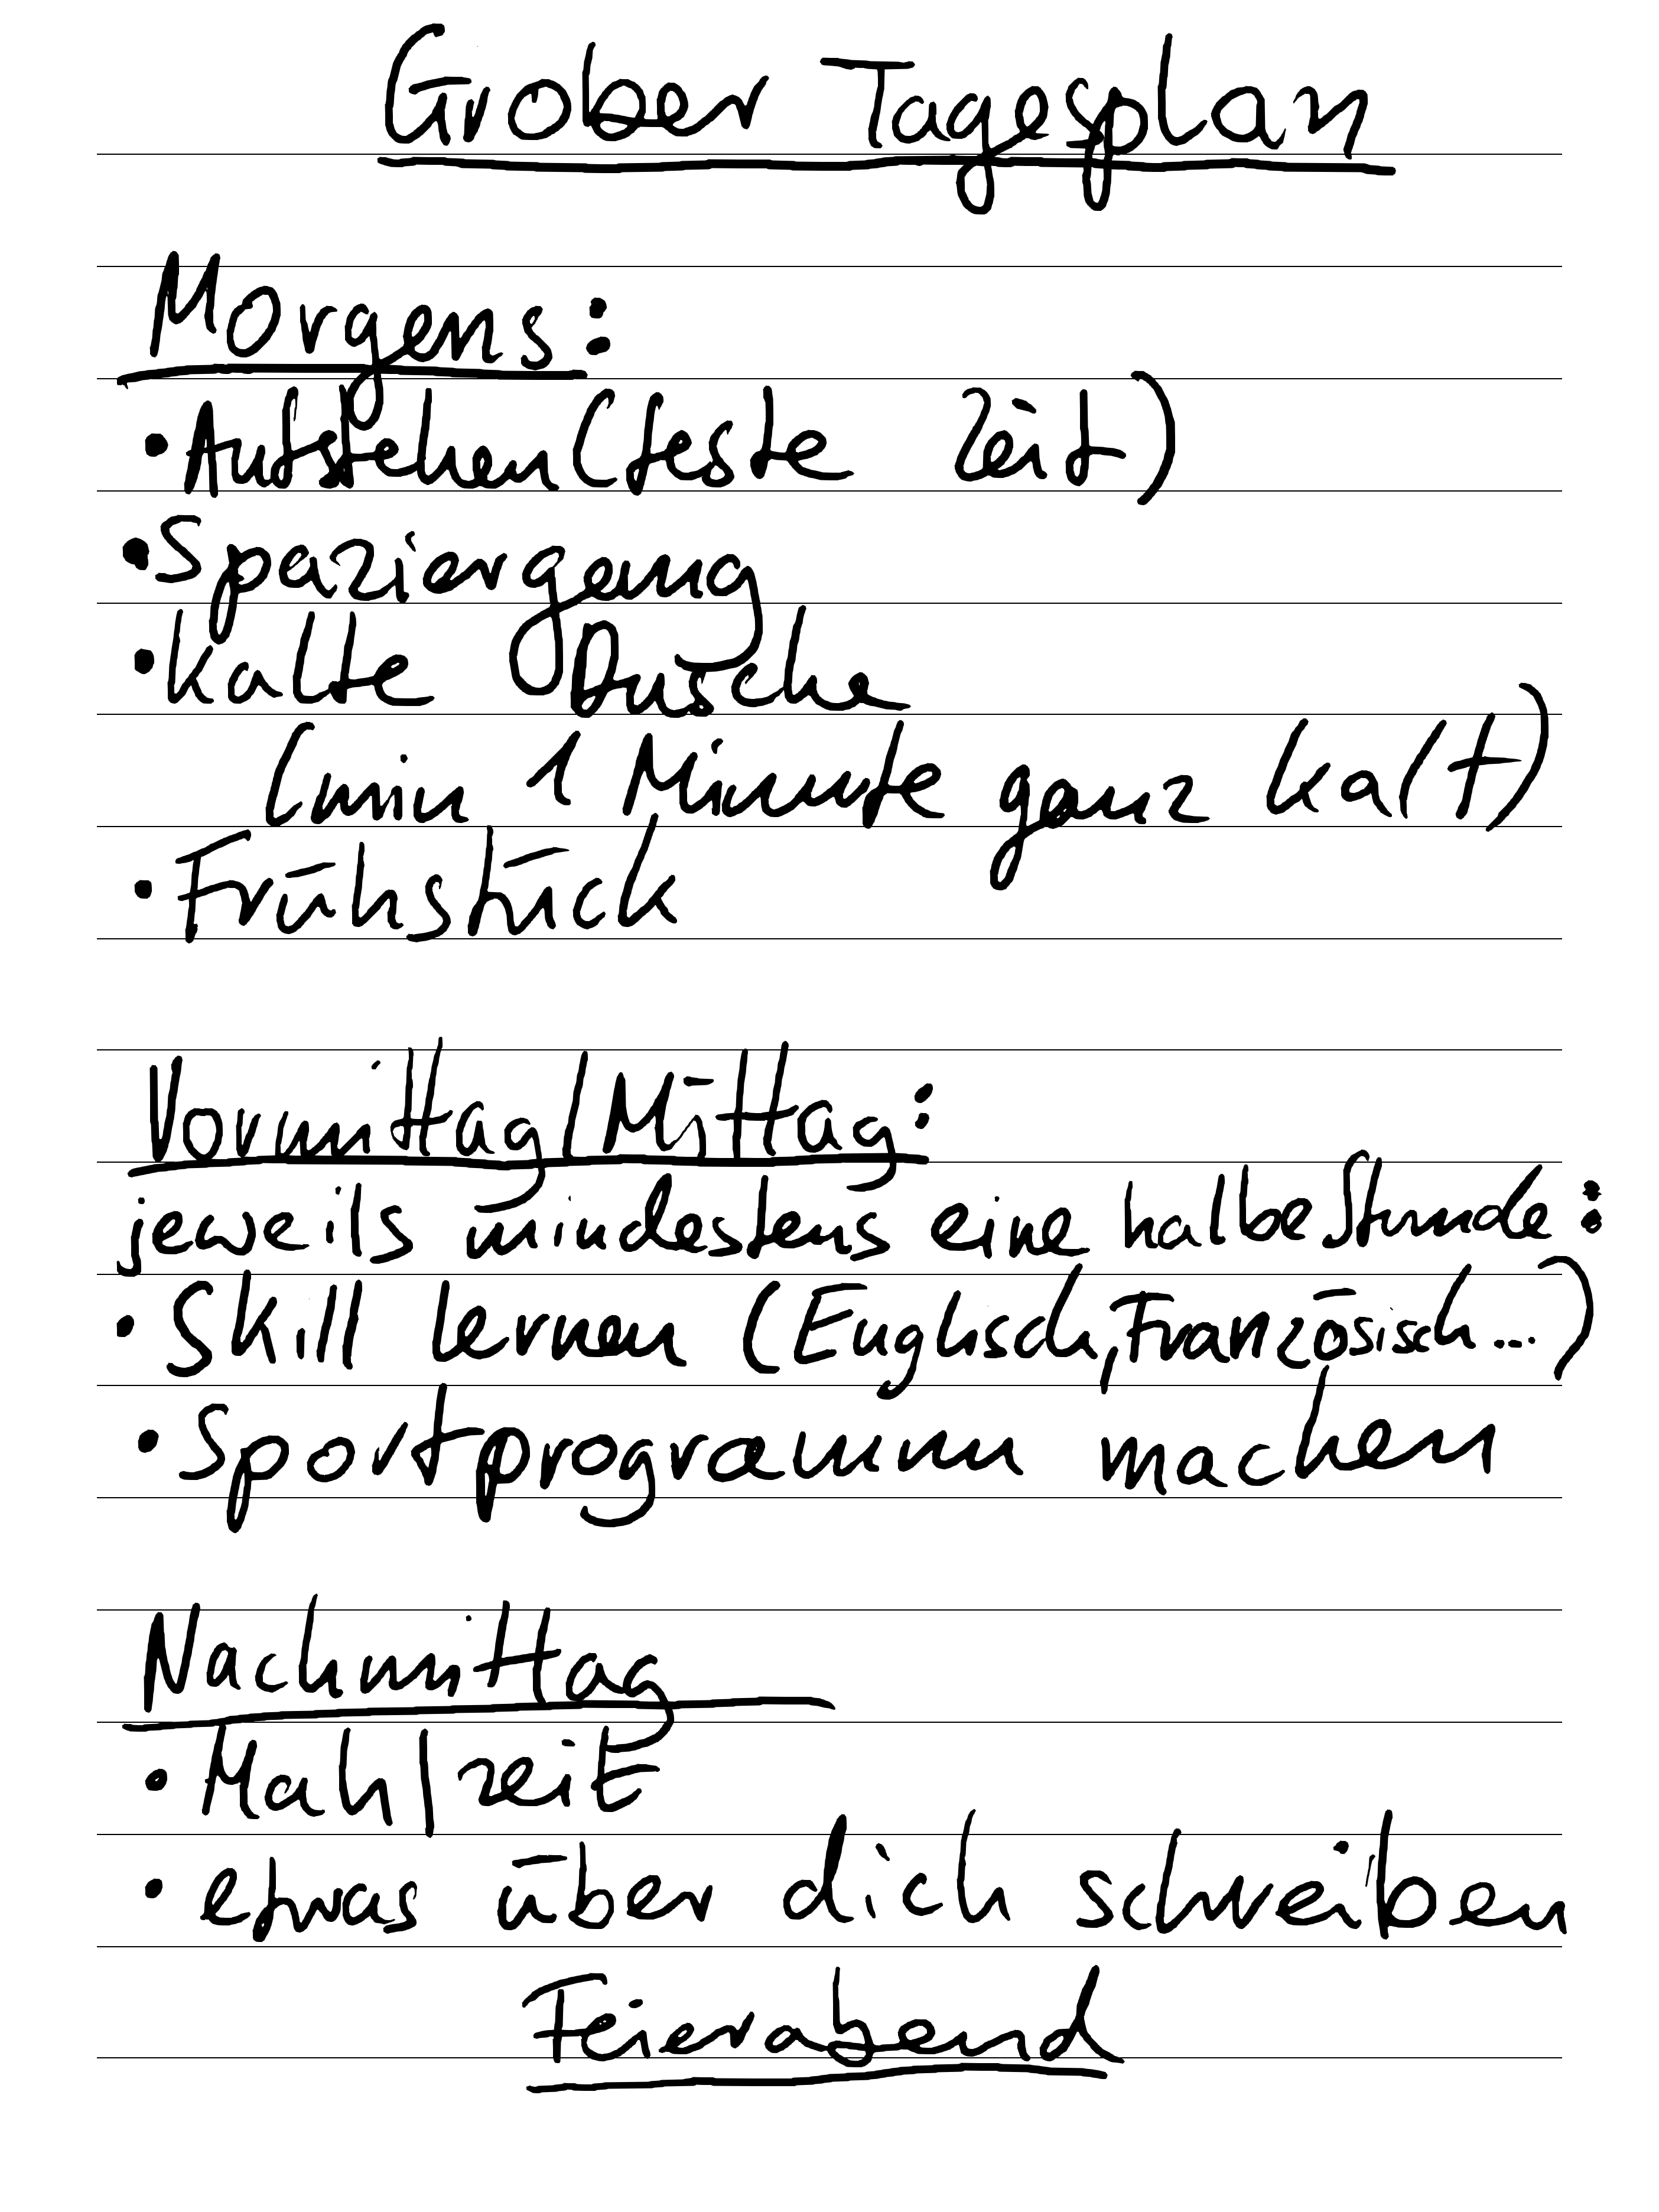 Grober Tagesplan
Morgens:
• Aufstehen (feste Zeit)
• Spaziergang
• kalte Dusche
(min 1 Minute ganz kalt)
• Frühstück
Vormittag/Mittag:
jeweils mindestens eine halbe Stunde:
• Skill lernen (Englisch, Französisch...)
• Sportprogramm machen
Nachmittag
• Mahlzeit
• etwas über dich schreiben
Feierabend